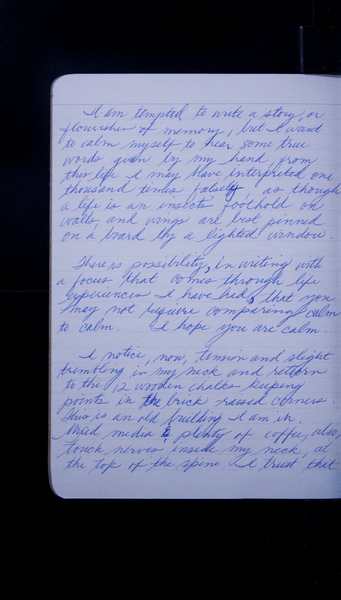 I am tempted to write a story, or
flourishes of memory, but I want
to calm myself to hear some true
words given by my hand from
this life I may have interpreted one
thousand times falsely, as though
a life is an insects foothold on
walls, and wings are best pinned
on a board by a lighted window.
There is possibility, in writing with
a focus that comes through life
experiences I have had, that you
may not require comparing calm
to calm. I hope you are calm.
I notice, now, tension and slight
trembling in my neck and return
to the 12 wooden chalks keeping
points in the brick raised corners.
This is an old building I am in.
Mixed media & plenty of coffee, also,
touch nerves inside my neck, at
the top of the spine. I trust that